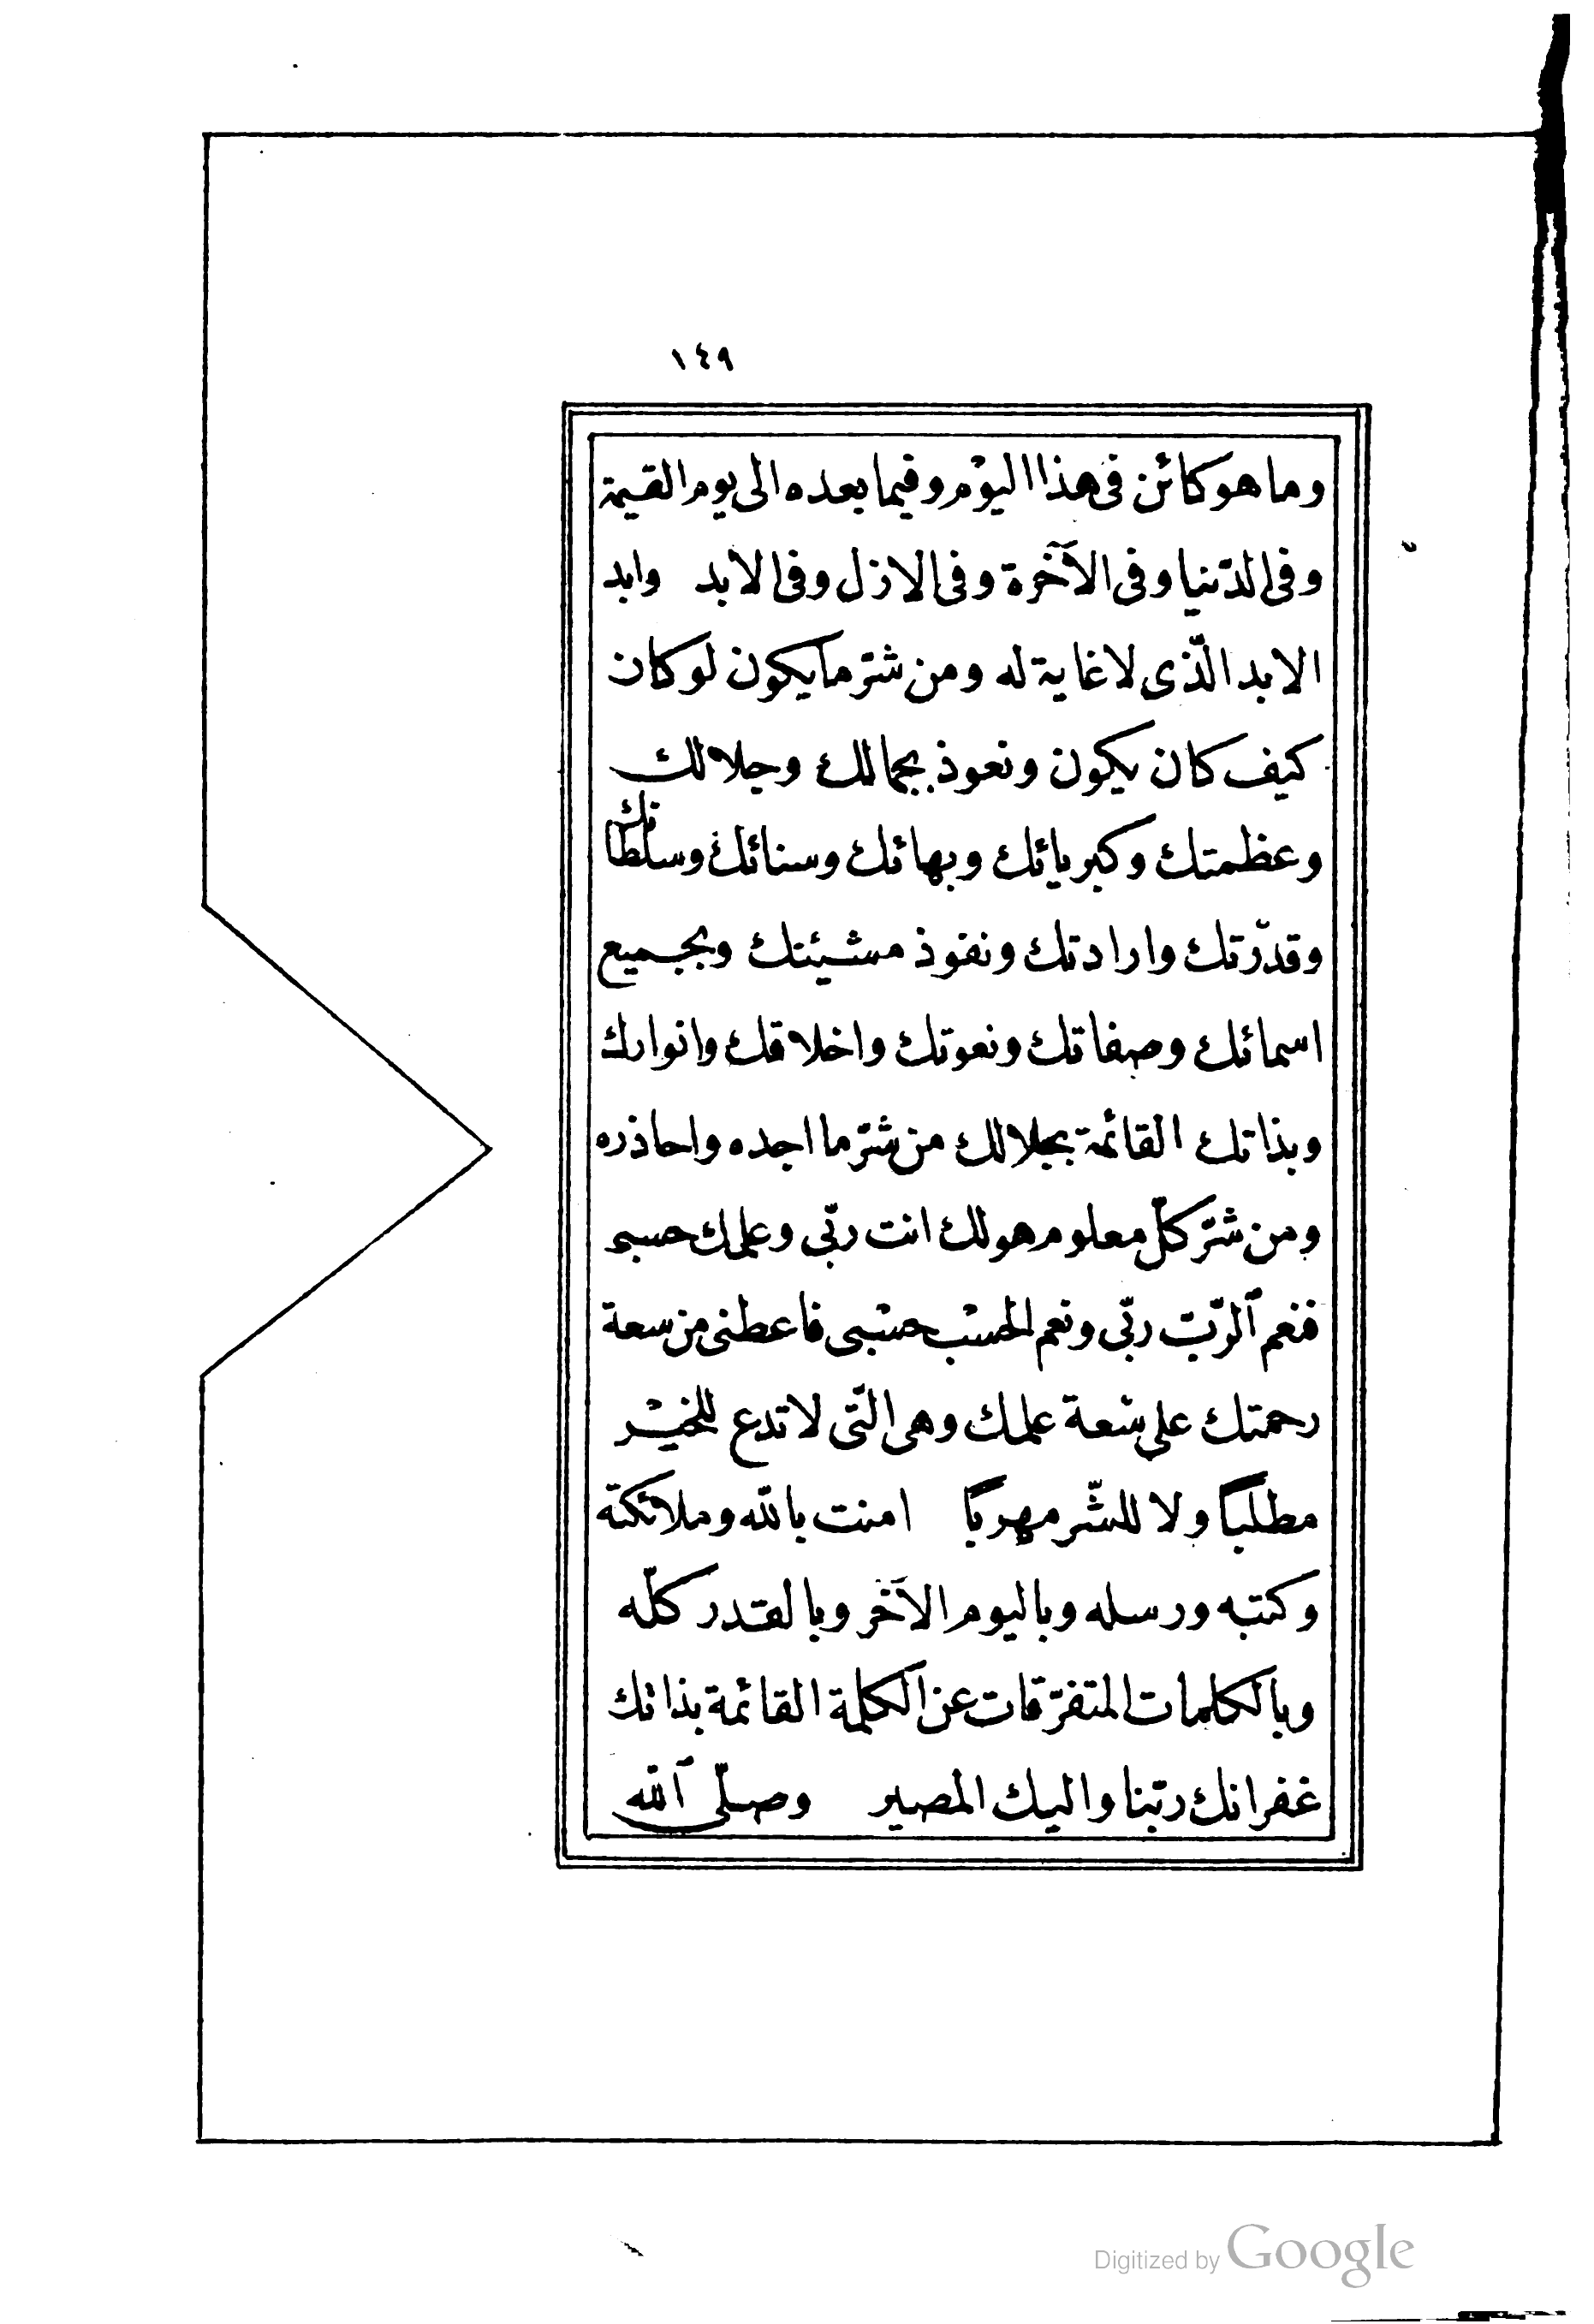 ١٤٩
وما هو كائن فى هذا اليوْم وفيما بعده الى يوم القيمة
وفى الدّنيا وفى الآخرة وفى الازل وفى الابد وابد
الابد الّذى لا غاية له ومن شرّ ما يكون لو كان
كيف كان يكون ونعوذ بجمالك وجلالك
وعظمتك وكبريائك وبهائك وسنائك وسلطانك
وقدرتك وارادتك ونفوذ مشيئتك وبجميع
اسمائك وصفاتك ونعوتك واخلاقك وانوارك
وبذاتك القائمة بجلالك من شرّ ما اجده واحاذره
ومن شرّ كلّ معلوم هو لك انت ربّى وعلمك حسبى
فنعم الرّبّ ربّى ونعم الحسْب حسْبى فاعطنى من سعة
رحمتك على سعة علمك وهى الّتى لا تدع للخيْر
مطلبًا ولا للشّر مهربًا امنت بالله وملائكته
وكتبه ورسله وباليوم الآخر وبالقدر كلّه
وبالكلمات المتفرّقات عن الكلمة القائمة بذاتك
غفرانك ربّنا واليك المصير وصلّى الله
Digitized by Google